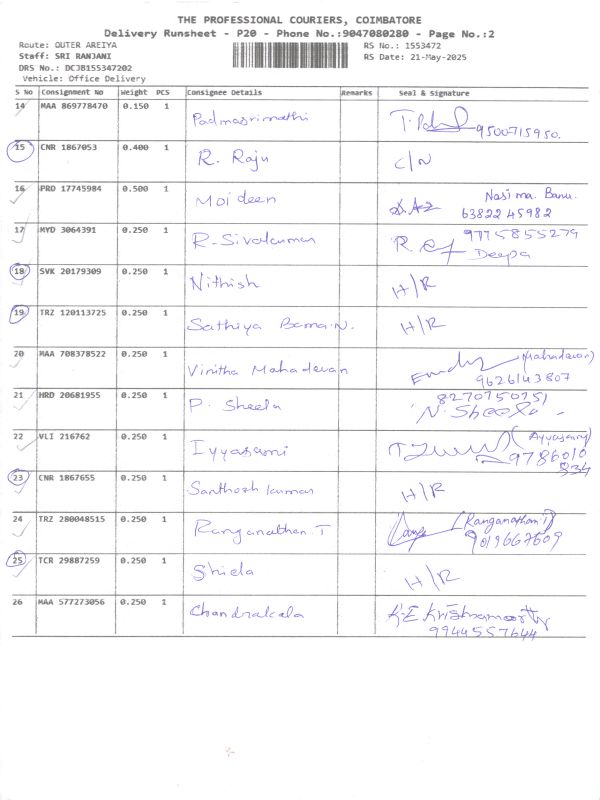 THE PROFESSIONAL COURIERS, COIMBATORE
Delivery Runsheet - P20 - Phone No.:9047080280 - Page No.:2
Route: OUTER AREIYA RS No.: 1553472
Staff: SRI RANJANI RS Date: 21-May-2025
DRS No.: DCJB155347202
Vehicle: Office Delivery
S No Consignment No Weight PCS Consignee Details Remarks Seal & signature
14 MAA 869778470 0.150 1 Padmasrimathi 9500715950.
15 CNR 1867053 0.400 1 R. Raju C/N
16 PRD 17745984 0.500 1 Moideen Nasima. Banu.
6382245982
17 MYD 3064391 0.250 1 R-Sivakumar 9715855279
Deepa
18 SVK 20179309 0.250 1 Nithish H/R
19 TRZ 120113725 0.250 1 Sathiya Bama.N. H/R
20 MAA 708378522 0.250 1 Vinitha Mahadevan (Mahadevan)
9626143807
21 HRD 20681955 0.250 1 P. Sheela 8270750751
N. Sheela
22 VLI 216762 0.250 1 Iyyasami (Ayyasamy)
9786010
334
23 CNR 1867655 0.250 1 Santhosh kumar H/R
24 TRZ 280048515 0.250 1 Ranganathan T (Ranganathan T)
9019667609
25 TCR 29887259 0.250 1 Shiela H/R
26 MAA 577273056 0.250 1 Chandrakala K.E Krishnamoorthy
9944557644